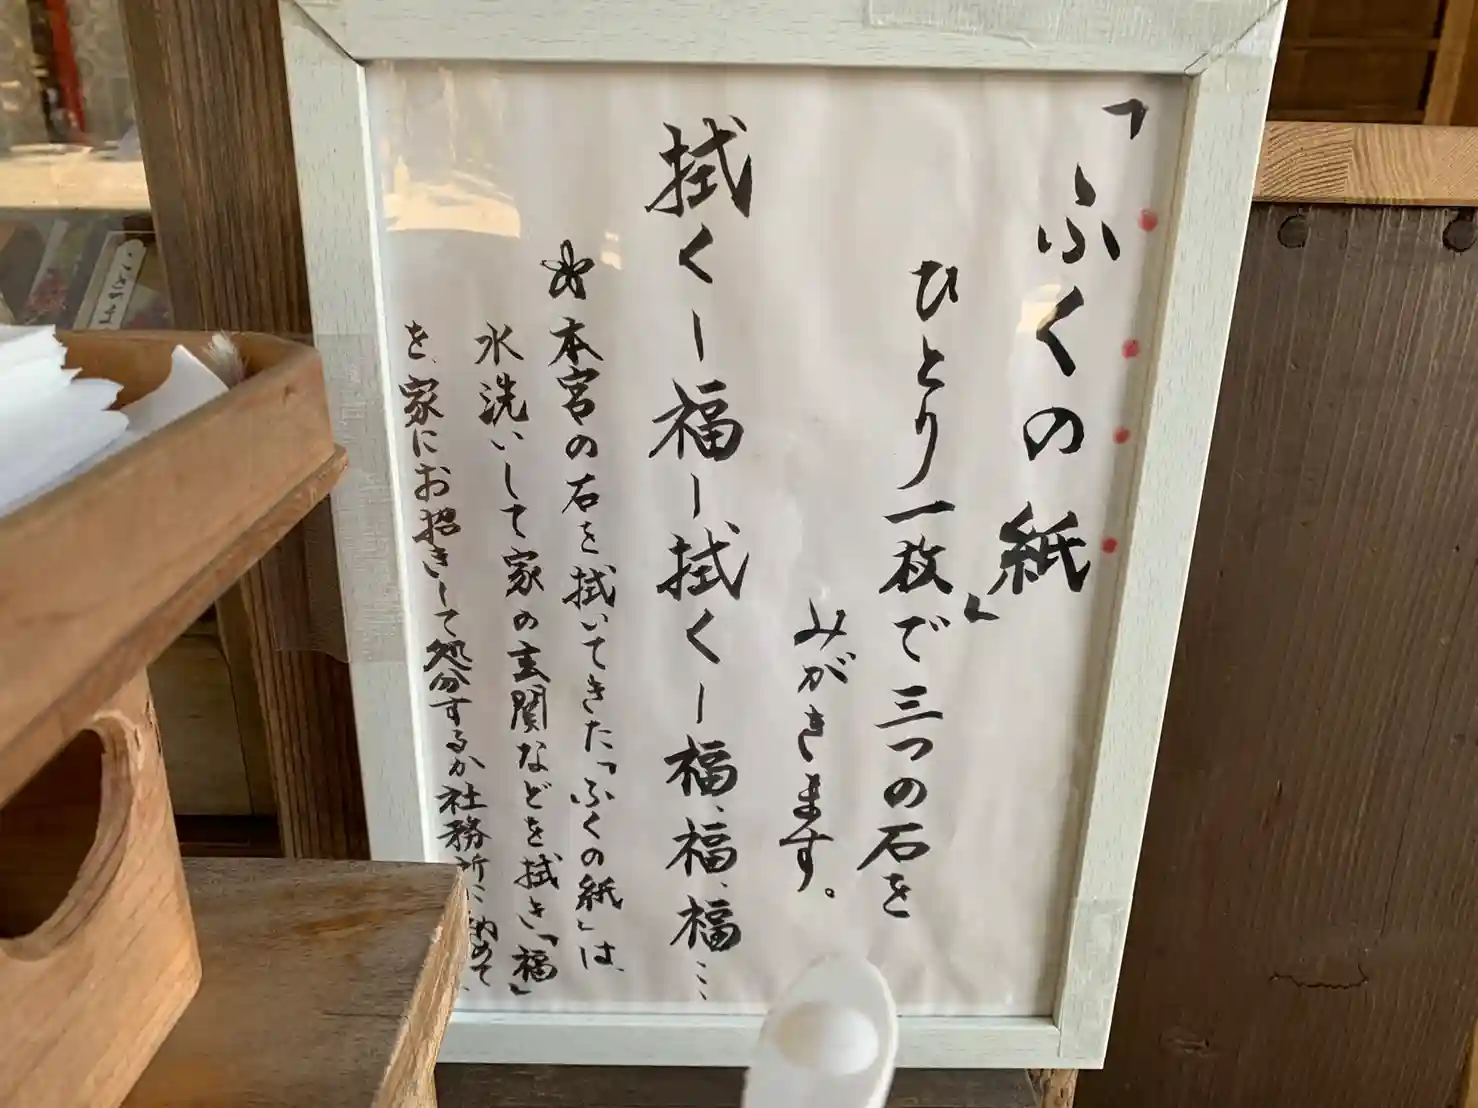 「ふくの紙」
ひとり一枚で三つの石を
みがきます。
拭くー福ー拭くー福、福、福…
本宮の石を拭いてきた「ふくの紙」は、
水洗いして家の玄関などを拭き「福」
を、家にお招きして処分するか社務所に納めて